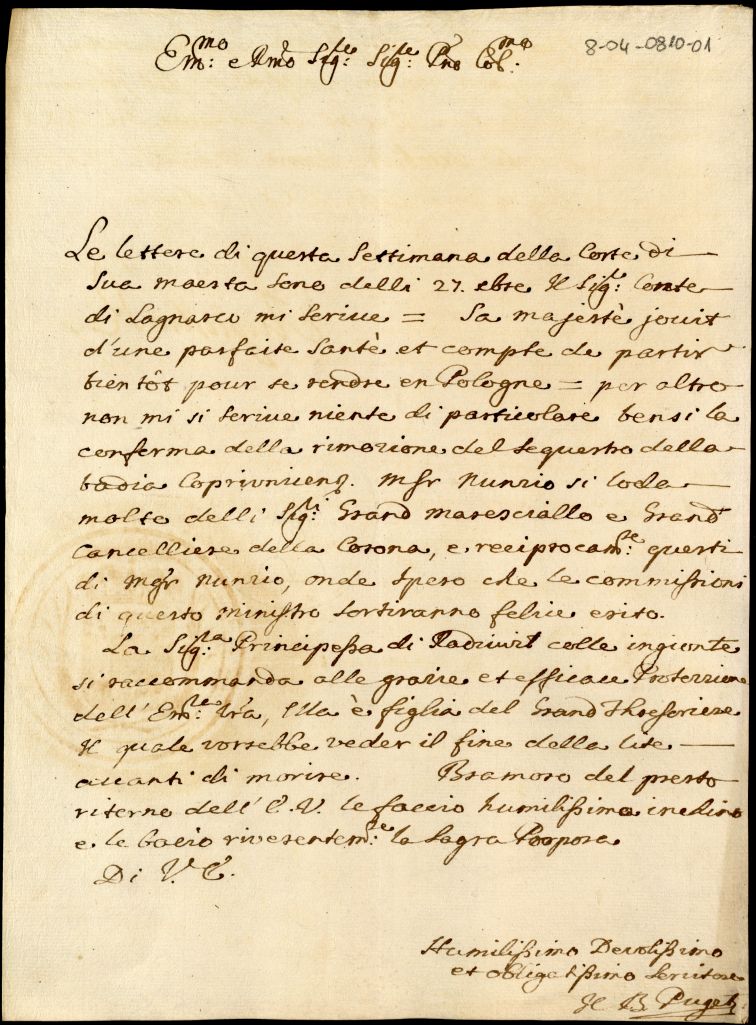 Em:mo e Rmo Sig:re Sig:re Pne Col:mo
8-04-0810-01
Le lettere di questa Settimana della Corte di
Sua maesta sono delli 27. xbre Il Sig:r Conte
di Lagnasco mi scrive = Sa majestè jouit
d'une parfaite Santè et compte de partir
bientôt pour se rendre en Pologne = per altro
non mi si scrive niente di particolare bensi la
conferma della rimozione del sequestro della
badia Coprivnicenz. Mgr Nunzio si loda
molto delli Sig:ri Grand maresciallo e Grand
Cancelliere della Corona, e reciprocam:te questi
di Mgr Nunzio, onde spero che le commissioni
di questo ministro sortiranno felice esito.
La Sig:ra Principessa di Radivil colle ingionte
si raccommanda alle grazie et efficace Protezzione
dell' Em:za Vra, Ella è figlia del Grand Thresoriere
Il quale vorrebbe veder il fine della lite
avanti di morire. Bramoso del presto
ritorno dell' E.V. le faccio humilissimo inchino
e le bacio riverentem:te la Sagra Porpora
Di V.E.
Humilissimo Devotissimo
et obligatissimo Servitore
Il B Puget